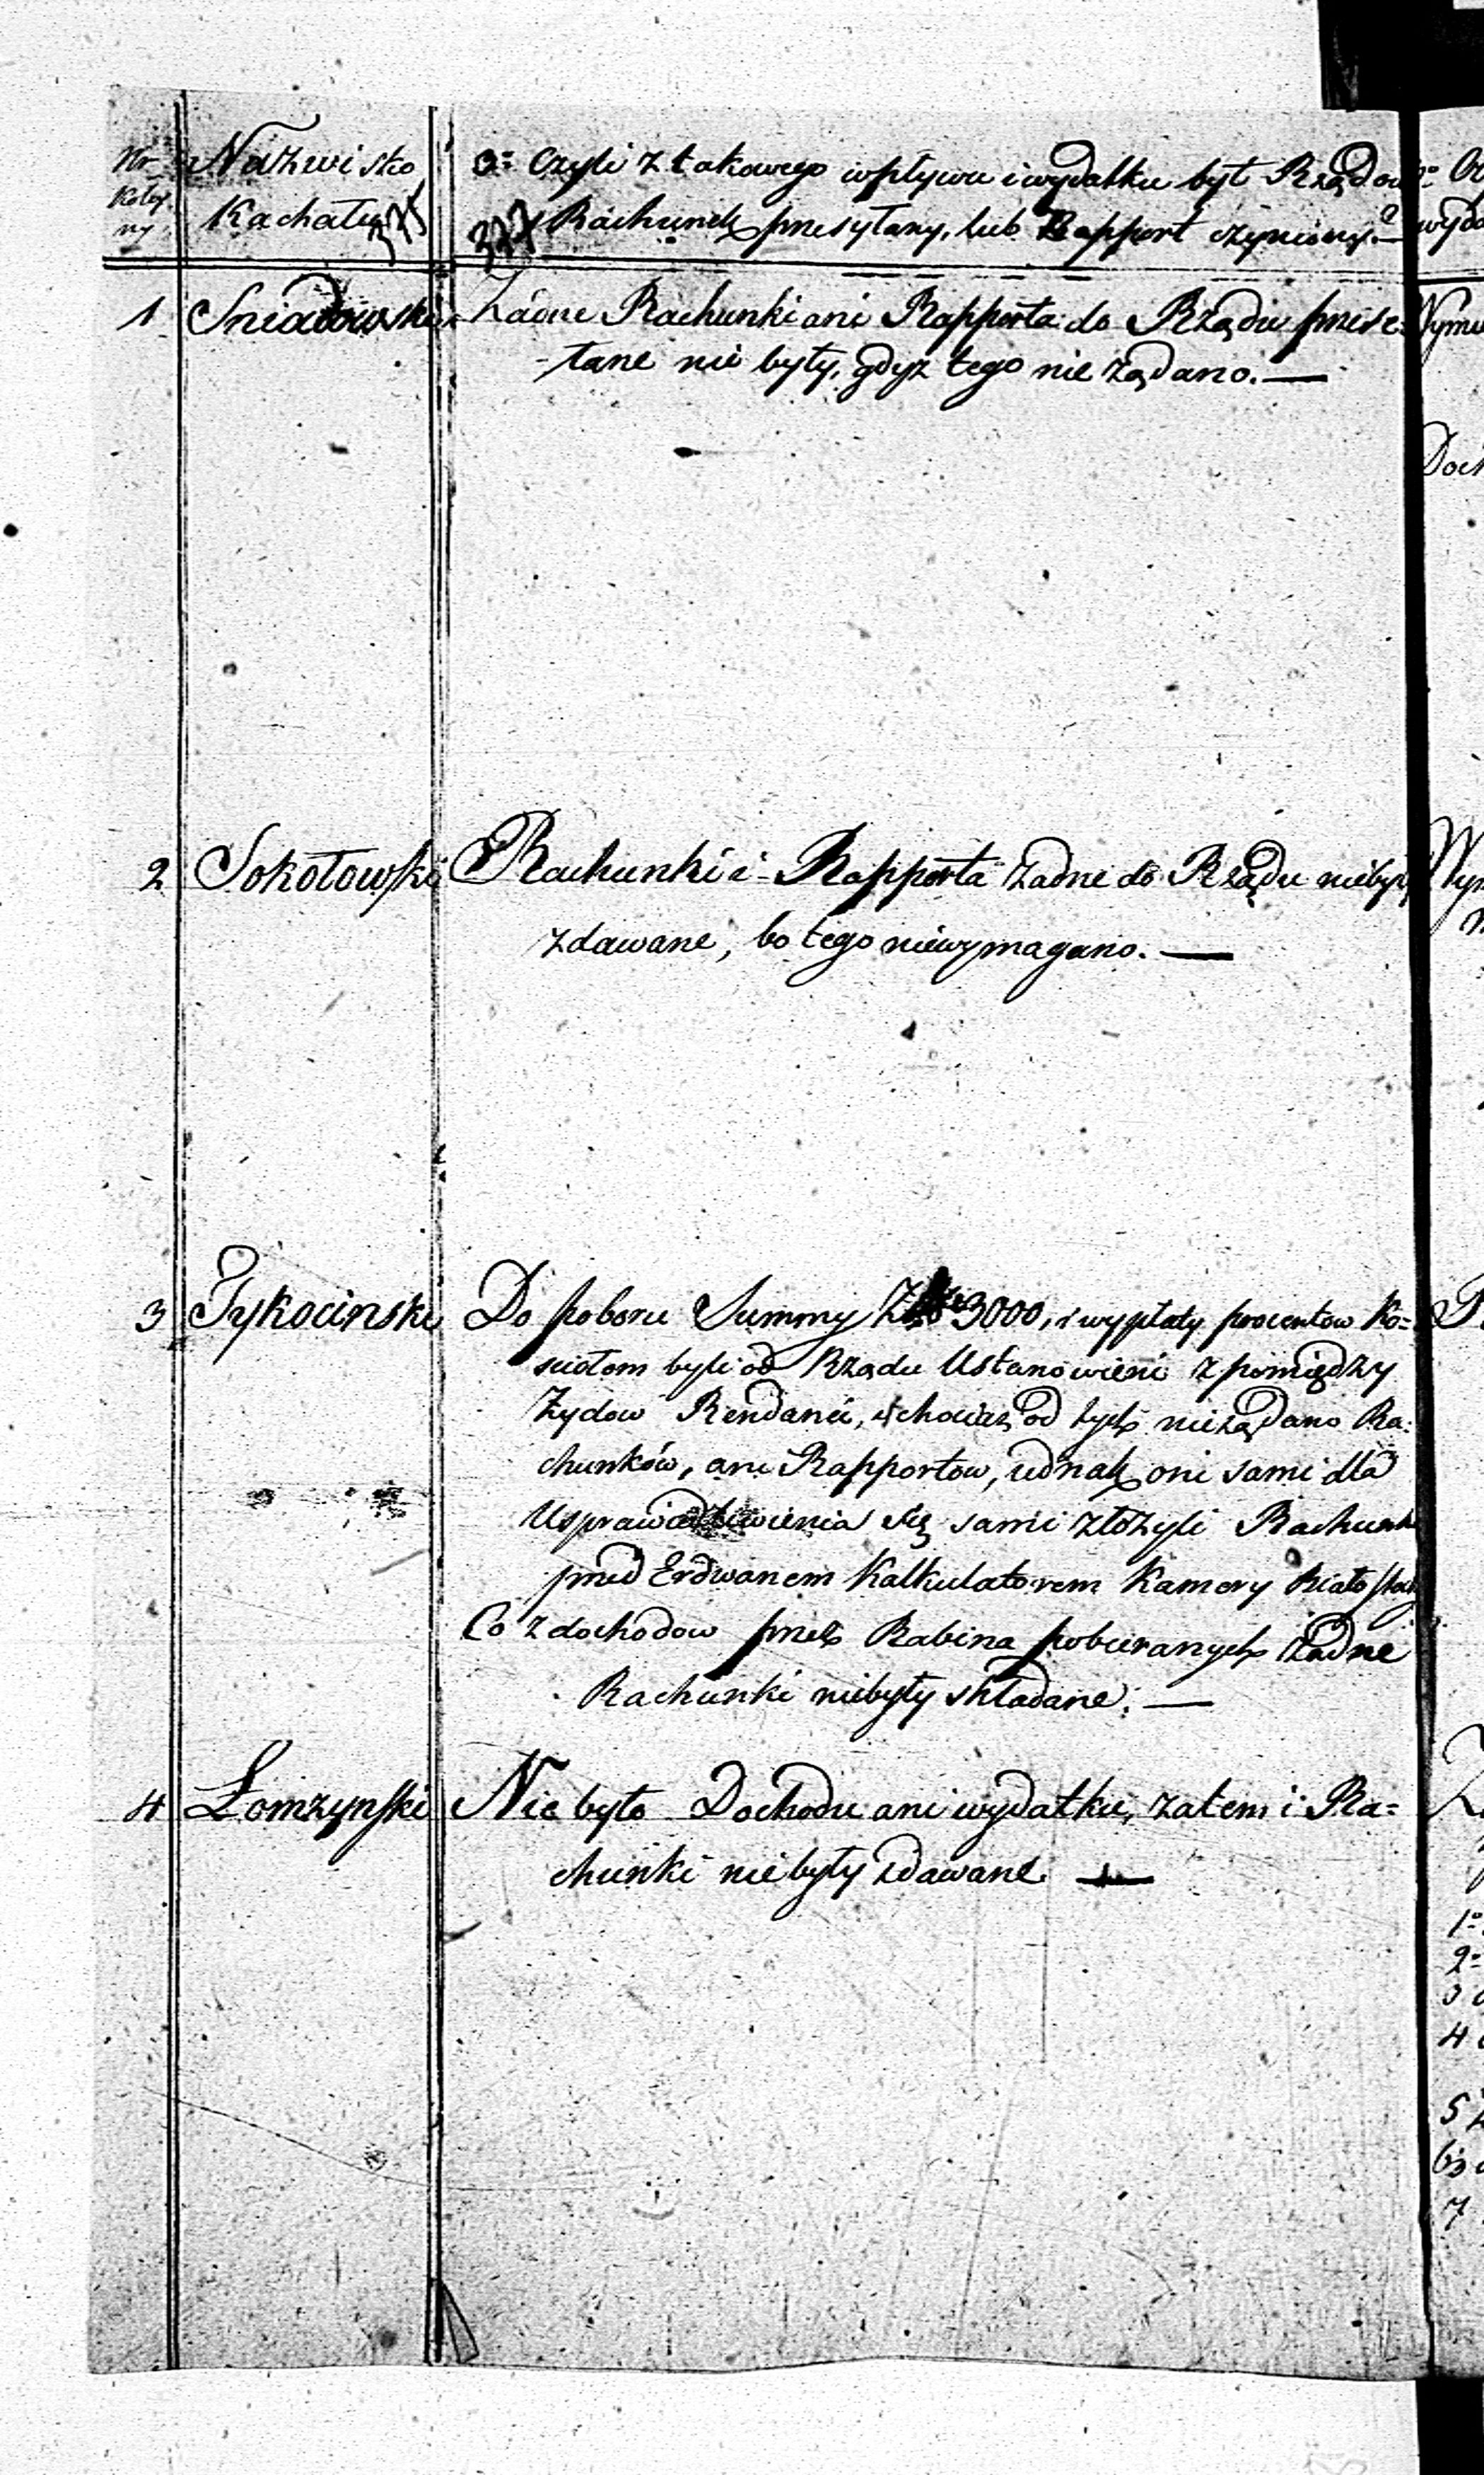 Nr Kolej ny
Nazwisko
Kachału
375
3º Czyli z takowego wpływu i wydatku był Rządowi
377 Rachunek przesyłany, lub Rapport czyniony?—
1 Sniadowski Żadne Rachunki ani Rapporta do Rządu przese=
-łane nie były, gdyz tego nie żądano.—
2 Sokołowski Rachunki i Rapporta żadne do Rządu niebyły
zdawane, bo tego niewymagano.—
3 Tykocinski Do poboru Summy 3000, i wypłaty procentow Ko=
sciołom byli od Rządu Ustanowieni z pomiędzy
Żydow Rendanci, chociaz od tych nieżądano Ra=
chunków, ani Rapportow, iednak oni sami dla
Usprawiedliwienia się sami złożyli Rachunki
przed Erdwanem Kalkulatorem Kamery Białostoc
Co z dochodow przez Rabina pobieranych żadne
Rachunki niebyły składane.—
4 Łomzynski Nie było Dochodu ani wydatku, zatem i Ra=
chunki niebyły zdawane.—